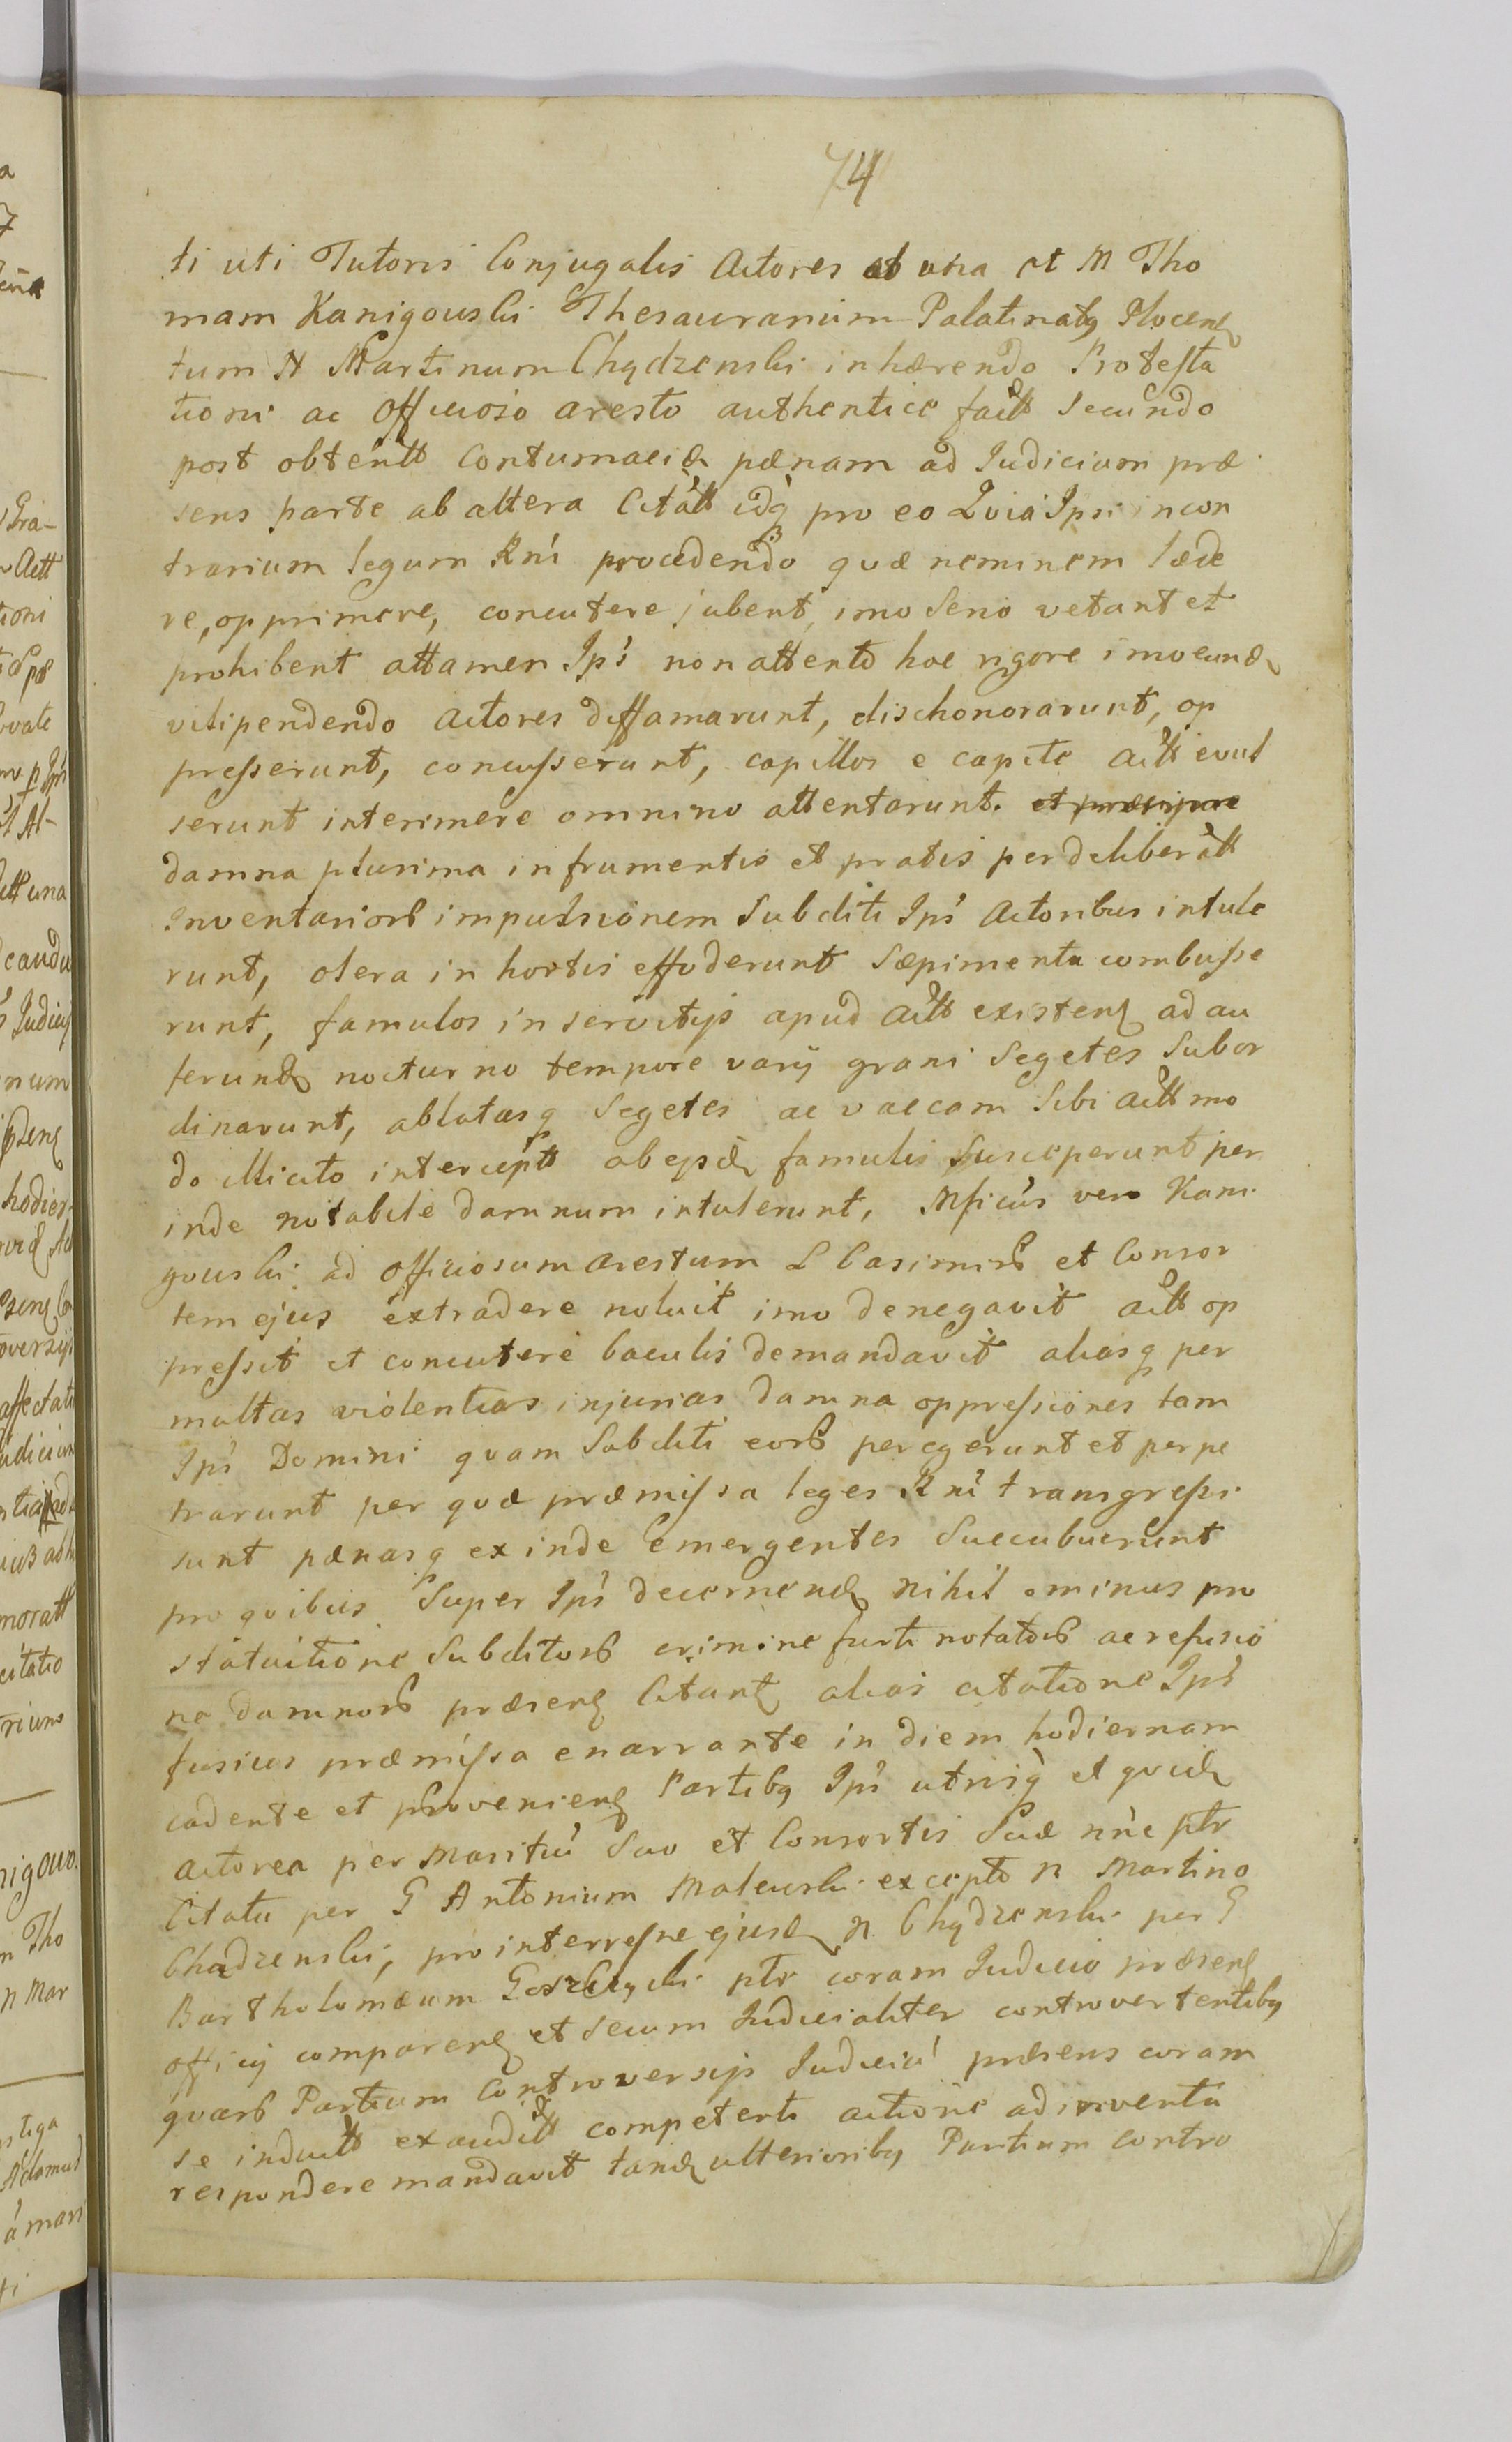 74
ti uti Tutoris Conjugalis Actores ab una et M Tho
mam Kanigowski Thesaurarium Palatinatq Plocenꝭ
tum N Martinum Chądzenski inhærendo Protesta
tioni ac Officioso aresto authentice factt secundo
post obtentt Contumaciæ pænam ad Iudicium præ
sens parte ab altera Citatt idq pro eo Quia Ipsi incon
trarium legum Rni procedendo quæ neminem læde
re, opprimere, concutere jubent, imo Serio vetant et
prohibent attamen Ipsi non attento hoc rigore imo eund
vilipendendo Actores diffamarunt, dischonorarunt, op
presserunt, concusserunt, capillos e capite Actt evul
serunt interimere omnino attentarunt.
damna plurima in frumentis et pratis per deliberatt
Inventariorb impulsionem Subditi Ipsi Actoribus intule
runt, olera in hortis effoderunt Sæpimenta combusse
runt, famulos in servitijs apud Actt existenꝭ ad au
ferund nocturno tempore varij grani Segetes Subor
dinarunt, ablatasq Segetes ac vaccam Sibi Actt mo
do illicito intercept ab ejsd famulis Susceperunt per
inde notabile damnum intulerunt, Mficus vero Kani
gowski ad Officiosum arestum L Casimirb et Consor
tem ejus extradere noluit imo denegavit actt op
pressit et concutere baculis demandavit aliasq per
multas violentias injurias damna oppressiones tam
Ipsi Domini quam Subditi eorb peregerunt et perpe
trarunt per quæ præmissa leges Rni transgressi
sunt pænasq exinde emergentes Succubuerunt
pro quibus Super Ipsi decernend nihil ominus pro
statuitione Subditorb crimine furti notatorb ac refusio
ne damnorb præsenꝭ Citantꝭ alias citatione Ipsi
fusius præmissa enarrante in diem hodiernam
cadente et provenienꝭ Partibq Ipsi utrisq et quid
actorea per Maritu Suo et Consortis Suæ nnc ptr
Citata per G Antonium Maleuski excepto N Martino
Chadzenski, pro interresse ejusd N Chądzenski per G
Bartholomæum Goszczycki ptr coram Iudicio præsenꝭ
officij comparenꝭ et secum Iudicialiter controvertentibq
quarb Partium Controversijs Iudiciu præsens coram
se inductt exauditt competenti actione adinventa
respondere mandavit tand ulterioribq Partium contro